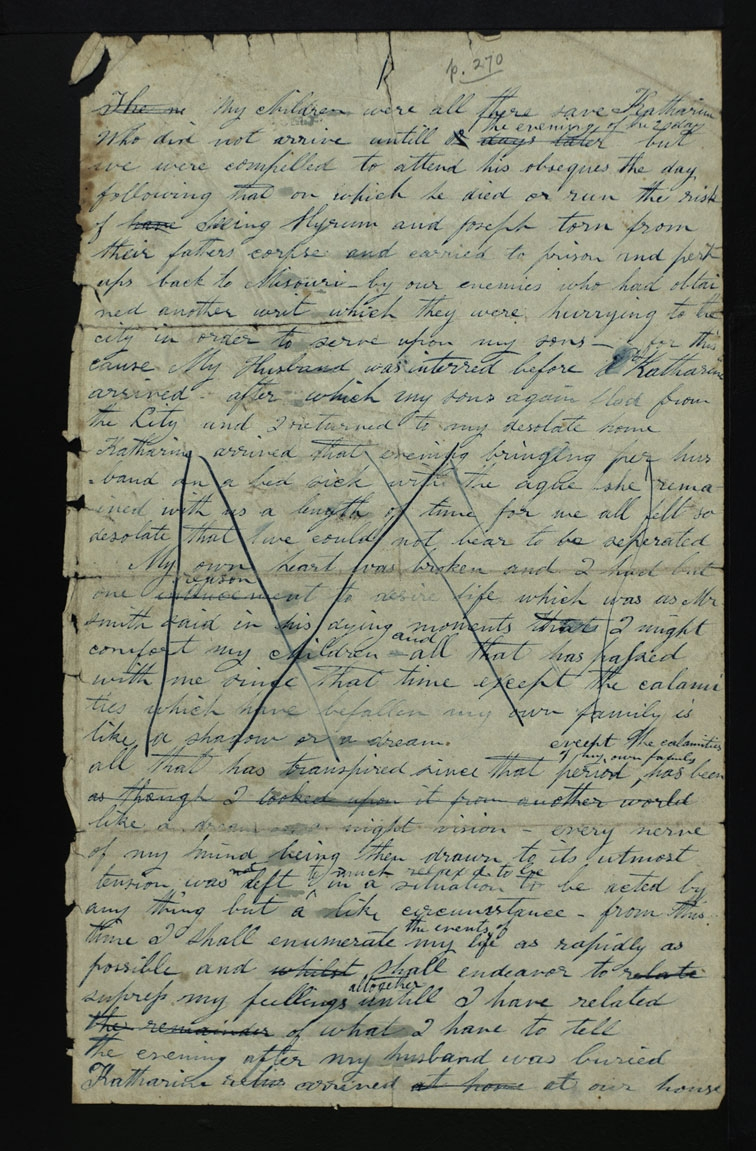 p. 270
The ne My children were all there save Katharine
the evening of the 2 day
Who did not arrive untill 2 days later but
we were compelled to attend his obseques the day
following that on which he died or run the risk
of have seeing Hyrum and Joseph torn from
their fathers corpse and carried to prison and perh
aps back to Misouri - by our enemies who had obtai
ned another writ which they were hurrying to the
city in order to serve upon my sons - for this
cause My Husband was interred before Katharine
arrived - after which my sons again fled from
the City and I returned to my desolate home
Katharine arrived that evening bringing her hus
-band on a bed sick with the ague she rema
-ined with us a length of time for we all felt so
desolate that we could not bear to be seperated
My own heart was broken and I had but
reason
one inducement to desire life which was as Mr
smith said in his dying moments that I might
and
comfort my children all that has passed
with me since that time except the calami
ties which have befallen my own family is
like a shadow or a dream.
except the calamities
of my own family
all that has transpired since that period has been
as though I looked upon it from another world
like a dream night vision - every nerve
of my mind being then drawn to its utmost
not to much relaxed to be
tension was left in a situation to be acted by
any thing but a like circumstance - from this
the events of
time I shall enumerate my life as rapidly as
possible and whilst shall endeavor to relate
altogether
supress my feellings untill I have related
the remainder of what I have to tell
the evening after my husband was buried
Katharine arrived at home at our house